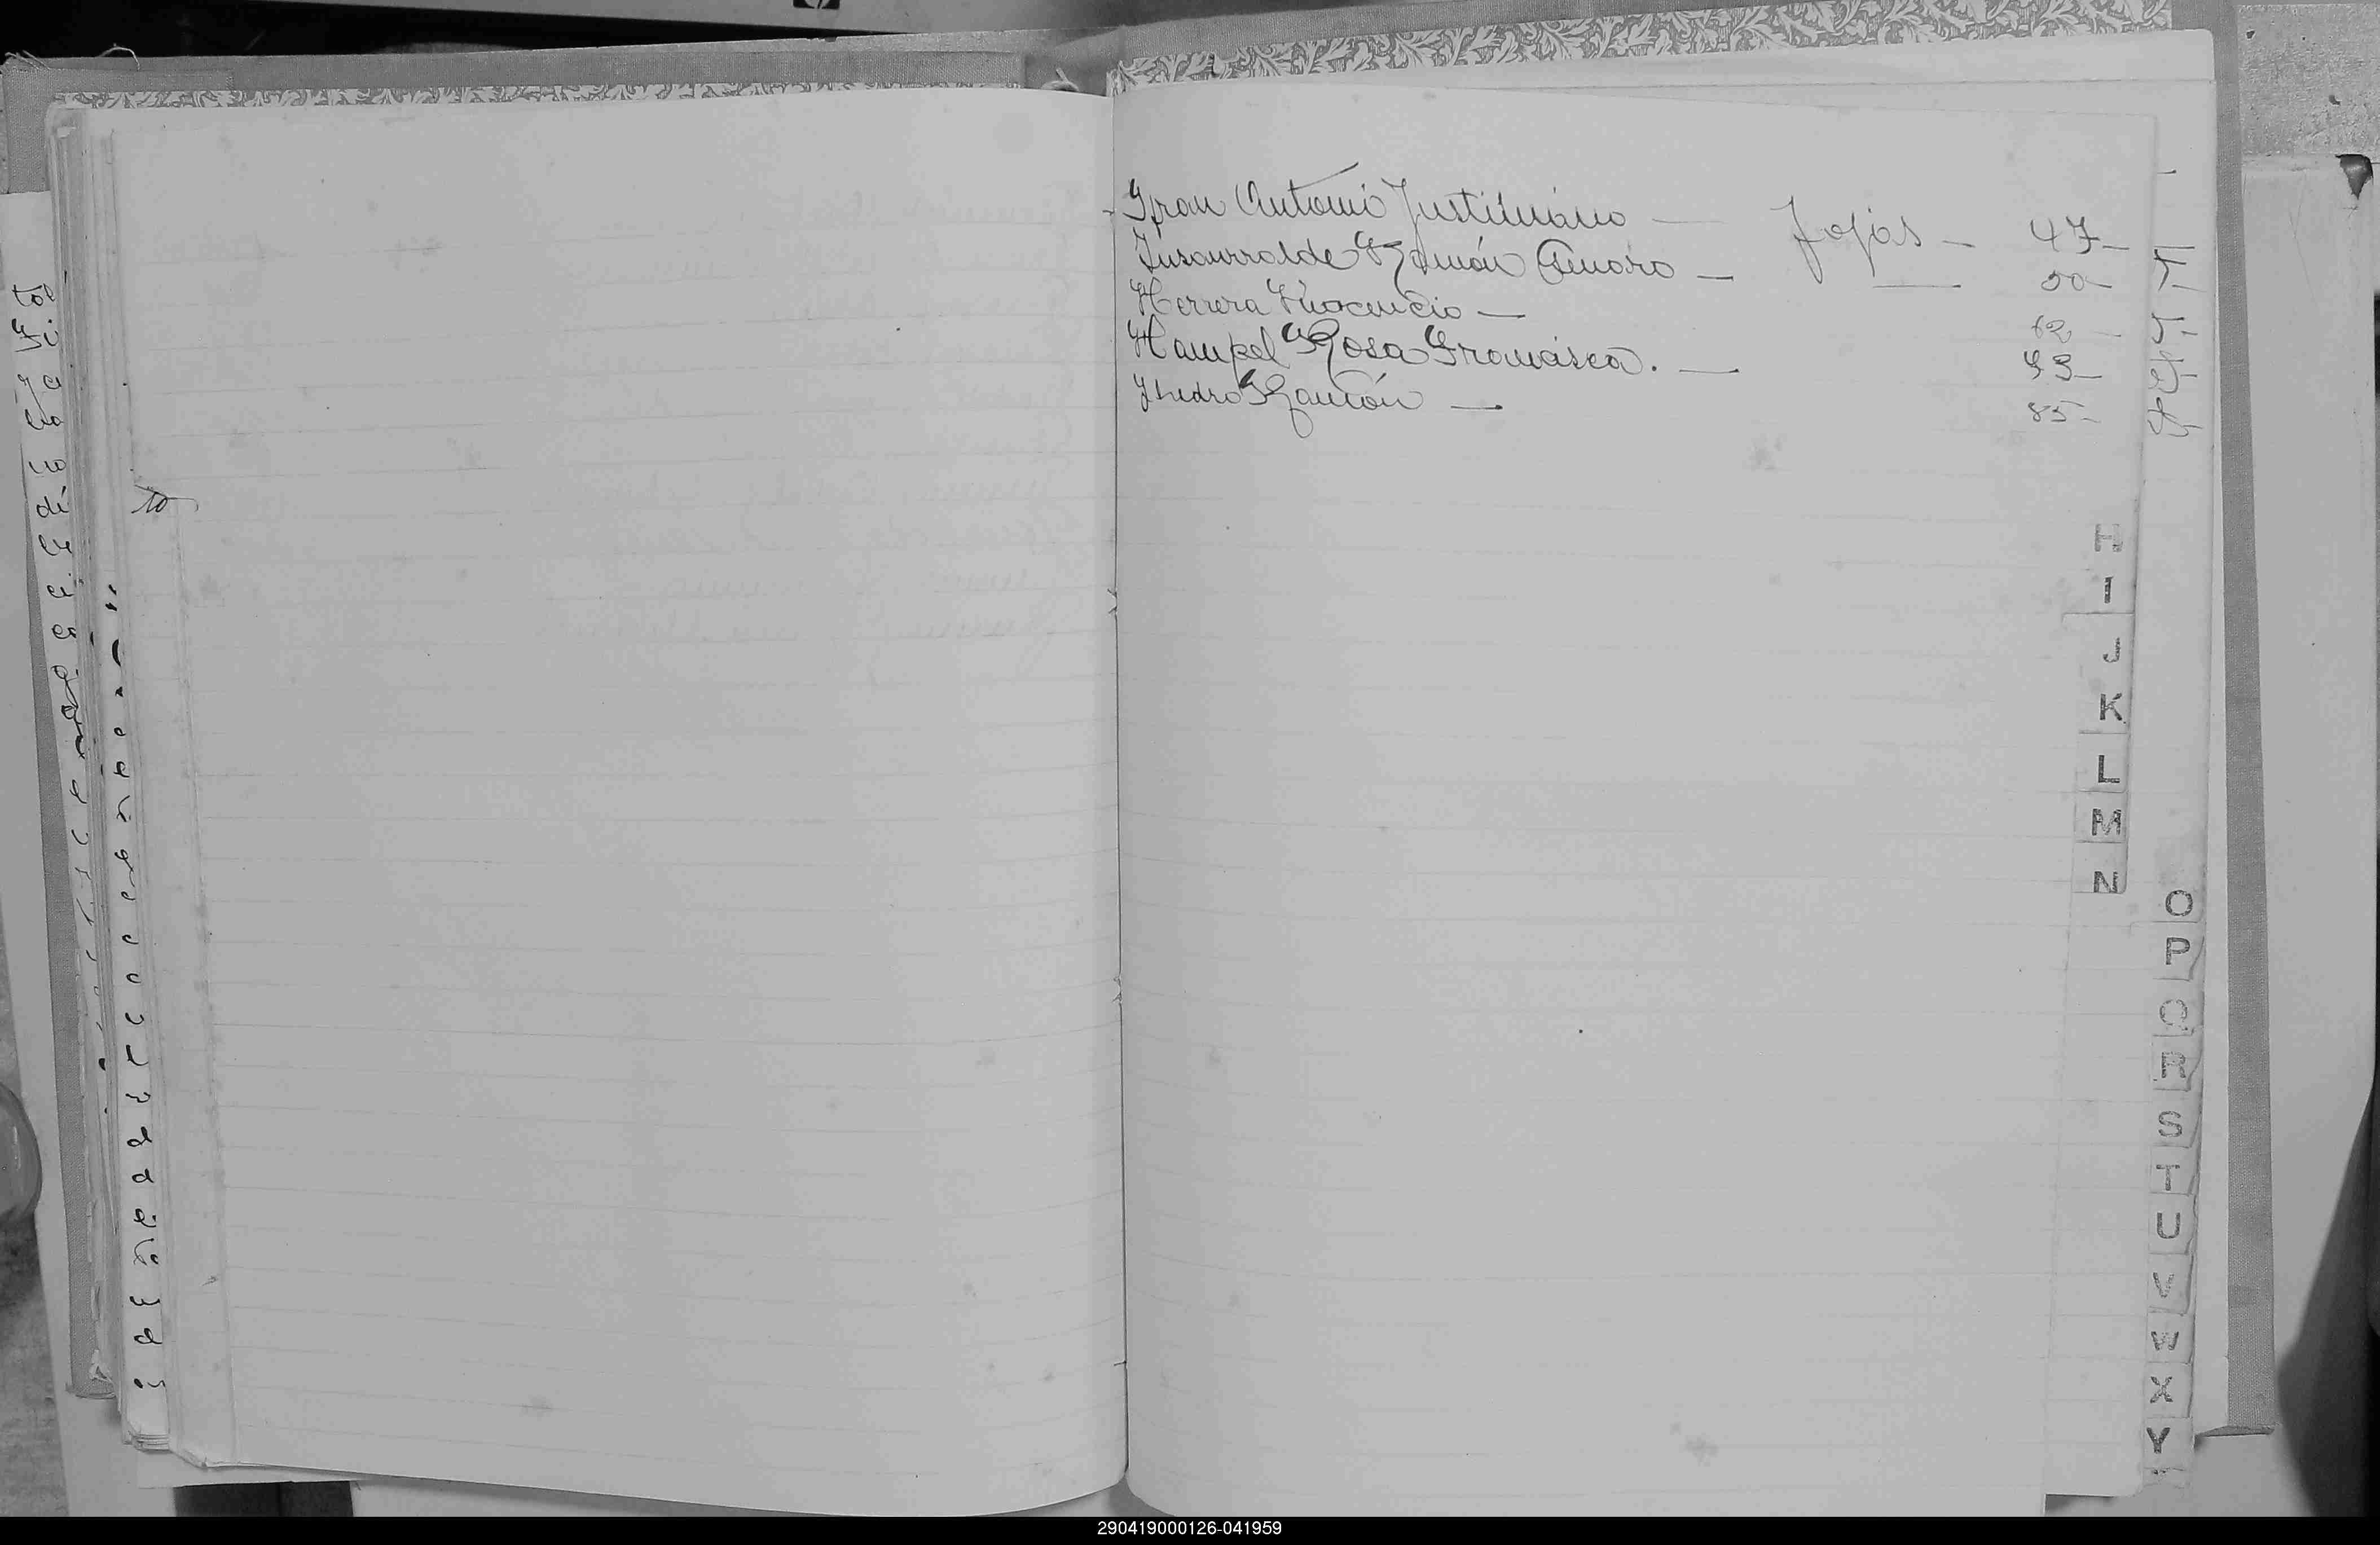 Ifran Antonio Justiniano — Fojas — 47—
Insaurralde Ramón Amaro — — 50—
Herrera Inocencio — 62 —
Hampel Rosa Francisca. — 73—
Ramón — 85—
H
I
J
K
L
M
N
O
P
Q
R
S
T
U
V
W
X
Y
290419000126-041959